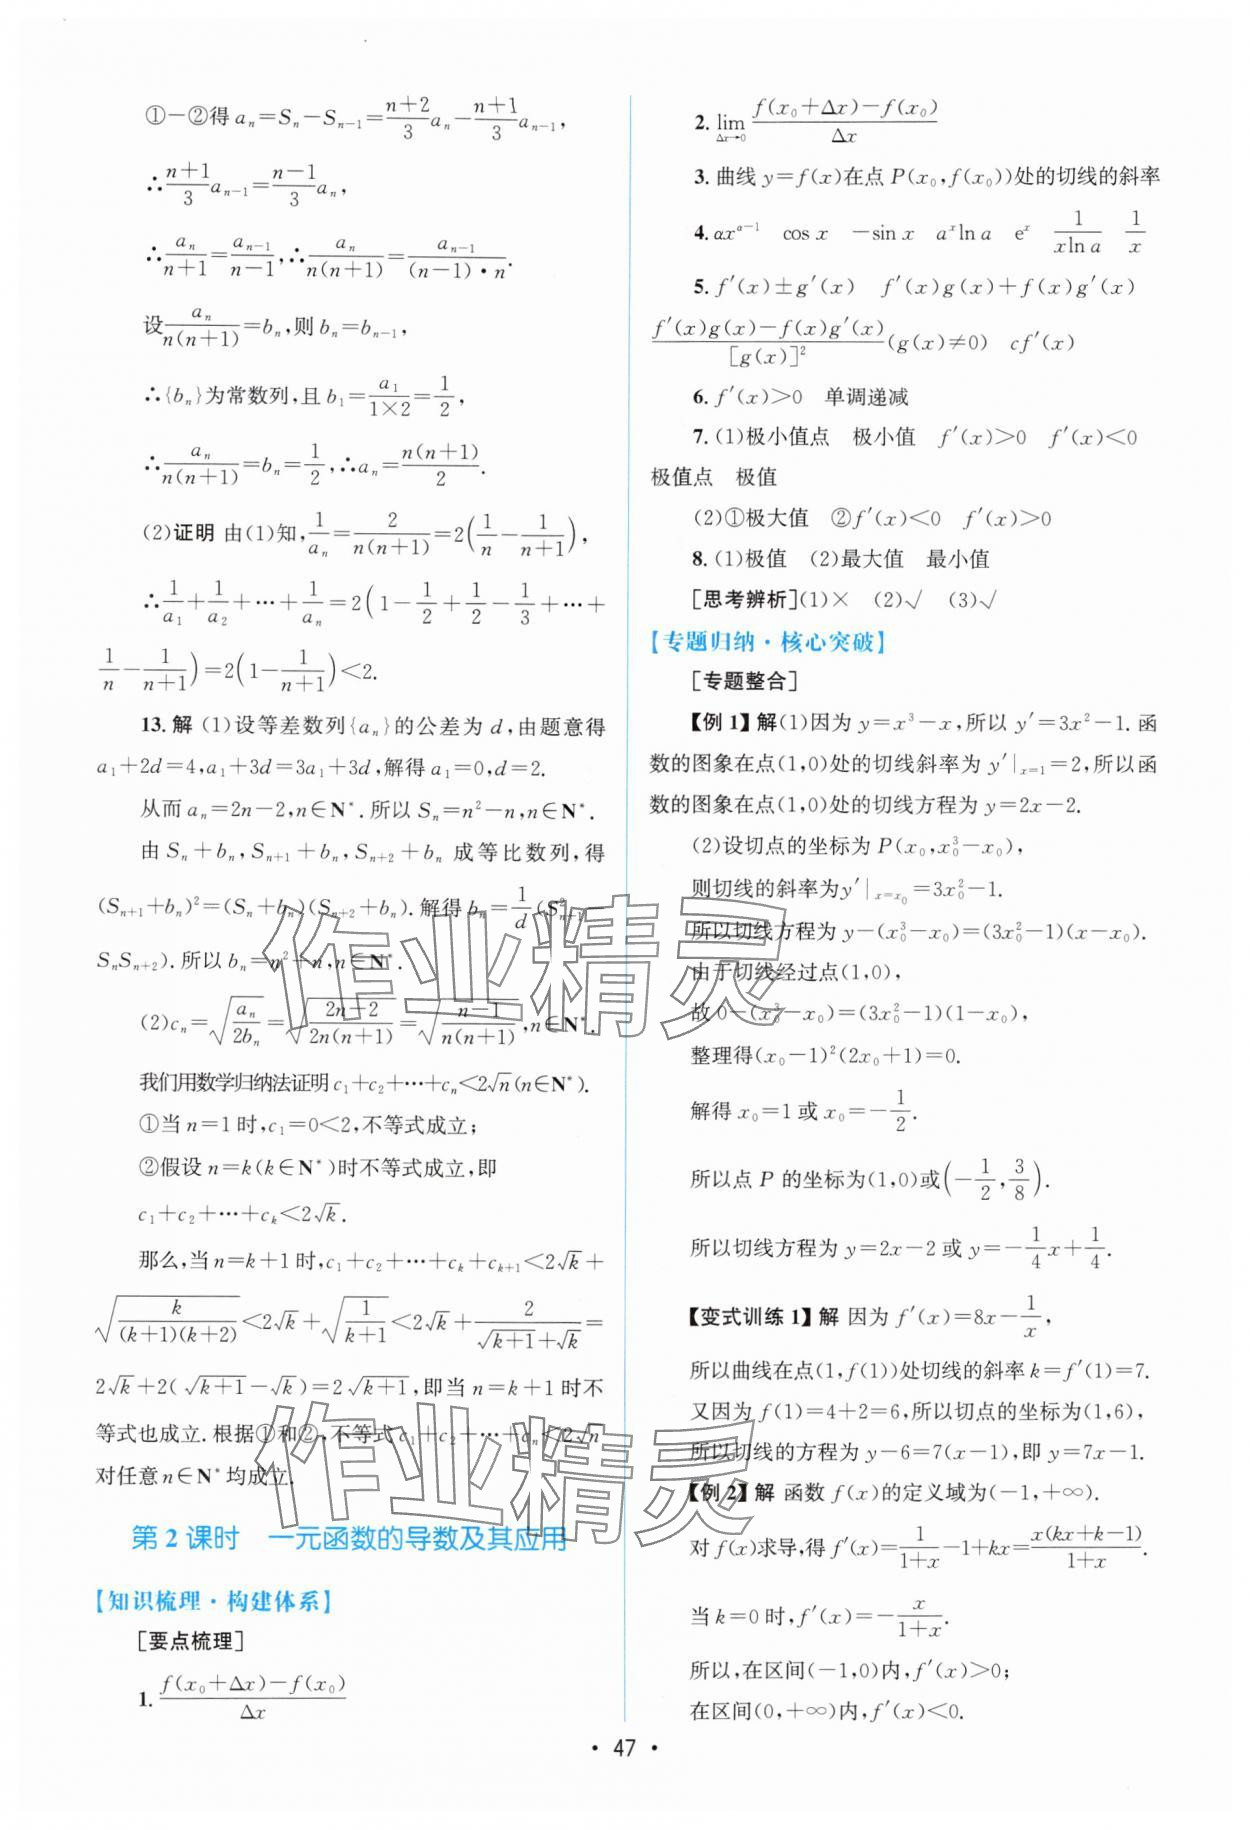 ①-②得 aₙ=Sₙ-Sₙ₋₁=\frac{n+2}{3}aₙ-\frac{n+1}{3}aₙ₋₁,
∴\frac{n+1}{3}aₙ₋₁=\frac{n-1}{3}aₙ,
∴\frac{aₙ}{n+1}=\frac{aₙ₋₁}{n-1},∴\frac{aₙ}{n(n+1)}=\frac{aₙ₋₁}{(n-1)·n}.
设\frac{aₙ}{n(n+1)}=bₙ,则 bₙ=bₙ₋₁,
∴{bₙ}为常数列,且 b₁=\frac{a₁}{1×2}=\frac{1}{2},
∴\frac{aₙ}{n(n+1)}=bₙ=\frac{1}{2},∴aₙ=\frac{n(n+1)}{2}.
(2)证明 由(1)知,\frac{1}{aₙ}=\frac{2}{n(n+1)}=2(\frac{1}{n}-\frac{1}{n+1}),
∴\frac{1}{a₁}+\frac{1}{a₂}+…+\frac{1}{aₙ}=2(1-\frac{1}{2}+\frac{1}{2}-\frac{1}{3}+…+
\frac{1}{n}-\frac{1}{n+1})=2(1-\frac{1}{n+1})<2.
13.解 (1)设等差数列{aₙ}的公差为 d,由题意得
a₁+2d=4,a₁+3d=3a₁+3d,解得 a₁=0,d=2.
从而 aₙ=2n-2,n∈N*.所以 Sₙ=n²-n,n∈N*.
由 Sₙ+bₙ,Sₙ₊₁+bₙ,Sₙ₊₂+bₙ 成等比数列,得
(Sₙ₊₁+bₙ)²=(Sₙ+bₙ)(Sₙ₊₂+bₙ).解得 bₙ=\frac{1}{d}(S²ₙ₊₁-
SₙSₙ₊₂).所以 bₙ=n²+n,n∈N*.
(2)cₙ=\sqrt{\frac{aₙ}{2bₙ}}=\sqrt{\frac{2n-2}{2n(n+1)}}=\sqrt{\frac{n-1}{n(n+1)}},n∈N*.
我们用数学归纳法证明 c₁+c₂+…+cₙ<2√n(n∈N*).
①当 n=1 时,c₁=0<2,不等式成立;
②假设 n=k(k∈N*)时不等式成立,即
c₁+c₂+…+cₖ<2√k.
那么,当 n=k+1 时,c₁+c₂+…+cₖ+cₖ₊₁<2√k+
\sqrt{\frac{k}{(k+1)(k+2)}}<2√k+\sqrt{\frac{1}{k+1}}<2√k+\frac{2}{\sqrt{k+1}+\sqrt{k}}=
2√k+2(\sqrt{k+1}-√k)=2\sqrt{k+1},即当 n=k+1 时不
等式也成立.根据①和②,不等式 c₁+c₂+…+cₙ<2√n
对任意 n∈N* 均成立.
第 2 课时 一元函数的导数及其应用
【知识梳理·构建体系】
[要点梳理]
1.\frac{f(x₀+Δx)-f(x₀)}{Δx}
2.\lim_{Δx→0}\frac{f(x₀+Δx)-f(x₀)}{Δx}
3.曲线 y=f(x)在点 P(x₀,f(x₀))处的切线的斜率
4.αx^{α-1} cos x -sin x aˣln a eˣ \frac{1}{xln a} \frac{1}{x}
5.f′(x)±g′(x) f′(x)g(x)+f(x)g′(x)
\frac{f′(x)g(x)-f(x)g′(x)}{[g(x)]²}(g(x)≠0) cf′(x)
6.f′(x)>0 单调递减
7.(1)极小值点 极小值 f′(x)>0 f′(x)<0
极值点 极值
(2)①极大值 ②f′(x)<0 f′(x)>0
8.(1)极值 (2)最大值 最小值
[思考辨析](1)× (2)√ (3)√
【专题归纳·核心突破】
[专题整合]
【例 1】解(1)因为 y=x³-x,所以 y′=3x²-1.函
数的图象在点(1,0)处的切线斜率为 y′|ₓ₌₁=2,所以函
数的图象在点(1,0)处的切线方程为 y=2x-2.
(2)设切点的坐标为 P(x₀,x₀³-x₀),
则切线的斜率为y′|_{x=x₀}=3x₀²-1.
所以切线方程为 y-(x₀³-x₀)=(3x₀²-1)(x-x₀).
由于切线经过点(1,0),
故 0-(x₀³-x₀)=(3x₀²-1)(1-x₀),
整理得(x₀-1)²(2x₀+1)=0.
解得 x₀=1 或 x₀=-\frac{1}{2}.
所以点 P 的坐标为(1,0)或(-\frac{1}{2},\frac{3}{8}).
所以切线方程为 y=2x-2 或 y=-\frac{1}{4}x+\frac{1}{4}.
【变式训练 1】解 因为 f′(x)=8x-\frac{1}{x},
所以曲线在点(1,f(1))处切线的斜率 k=f′(1)=7.
又因为 f(1)=4+2=6,所以切点的坐标为(1,6),
所以切线的方程为 y-6=7(x-1),即 y=7x-1.
【例 2】解 函数 f(x)的定义域为(-1,+∞).
对 f(x)求导,得 f′(x)=\frac{1}{1+x}-1+kx=\frac{x(kx+k-1)}{1+x}.
当 k=0 时,f′(x)=-\frac{x}{1+x}.
所以,在区间(-1,0)内,f′(x)>0;
在区间(0,+∞)内,f′(x)<0.
·47·
作业精灵
作业精灵